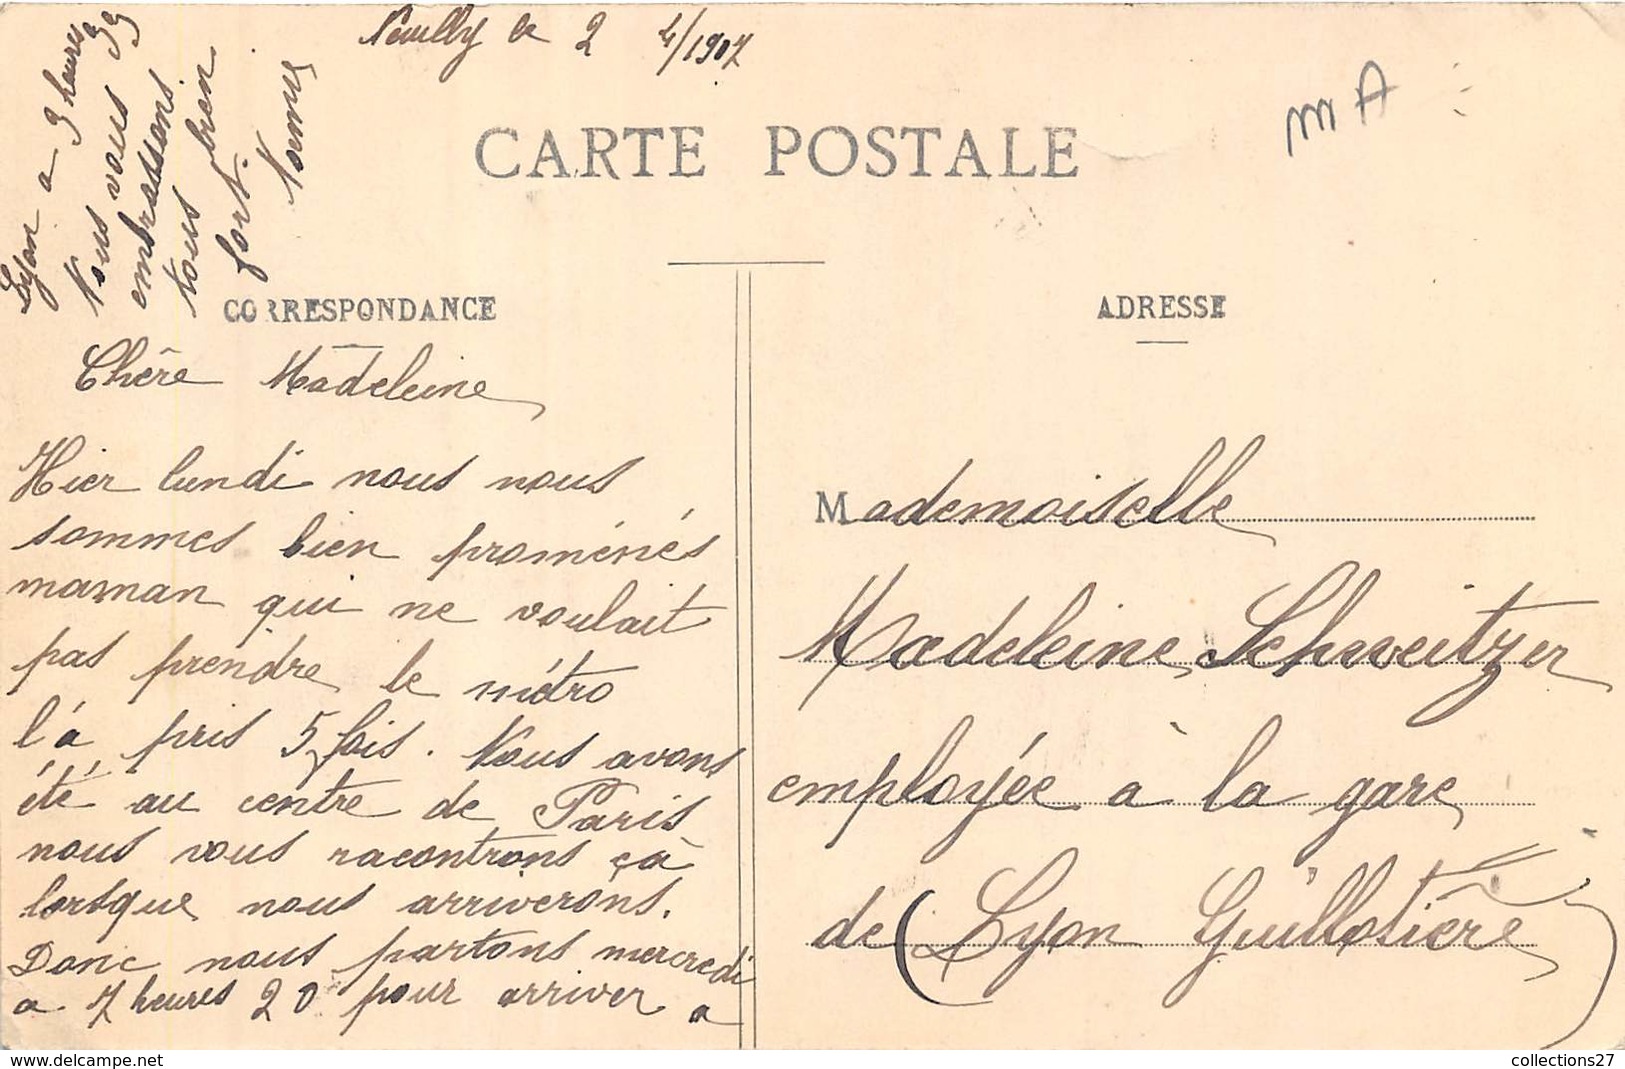 Neuilly le 2 4/1907
m A
CARTE POSTALE
CORRESPONDANCE
Chère Madeleine
Hier lundi nous nous
sommes bien proménés
maman qui ne voulait
pas prendre le métro
l'a pris 5 fois. Nous avons
été au centre de Paris
nous vous racontrons çà
lorsque nous arriverons.
Donc nous partons mercredi
a 7 heures 20 pour arriver a
Lyon a 3 heures 39
Nous vous
embrassons
tous bien
fort.
ADRESSE
Mademoiselle
Madeleine Schweitzer
employée à la gare
de (Lyon Guillotière)
collections27